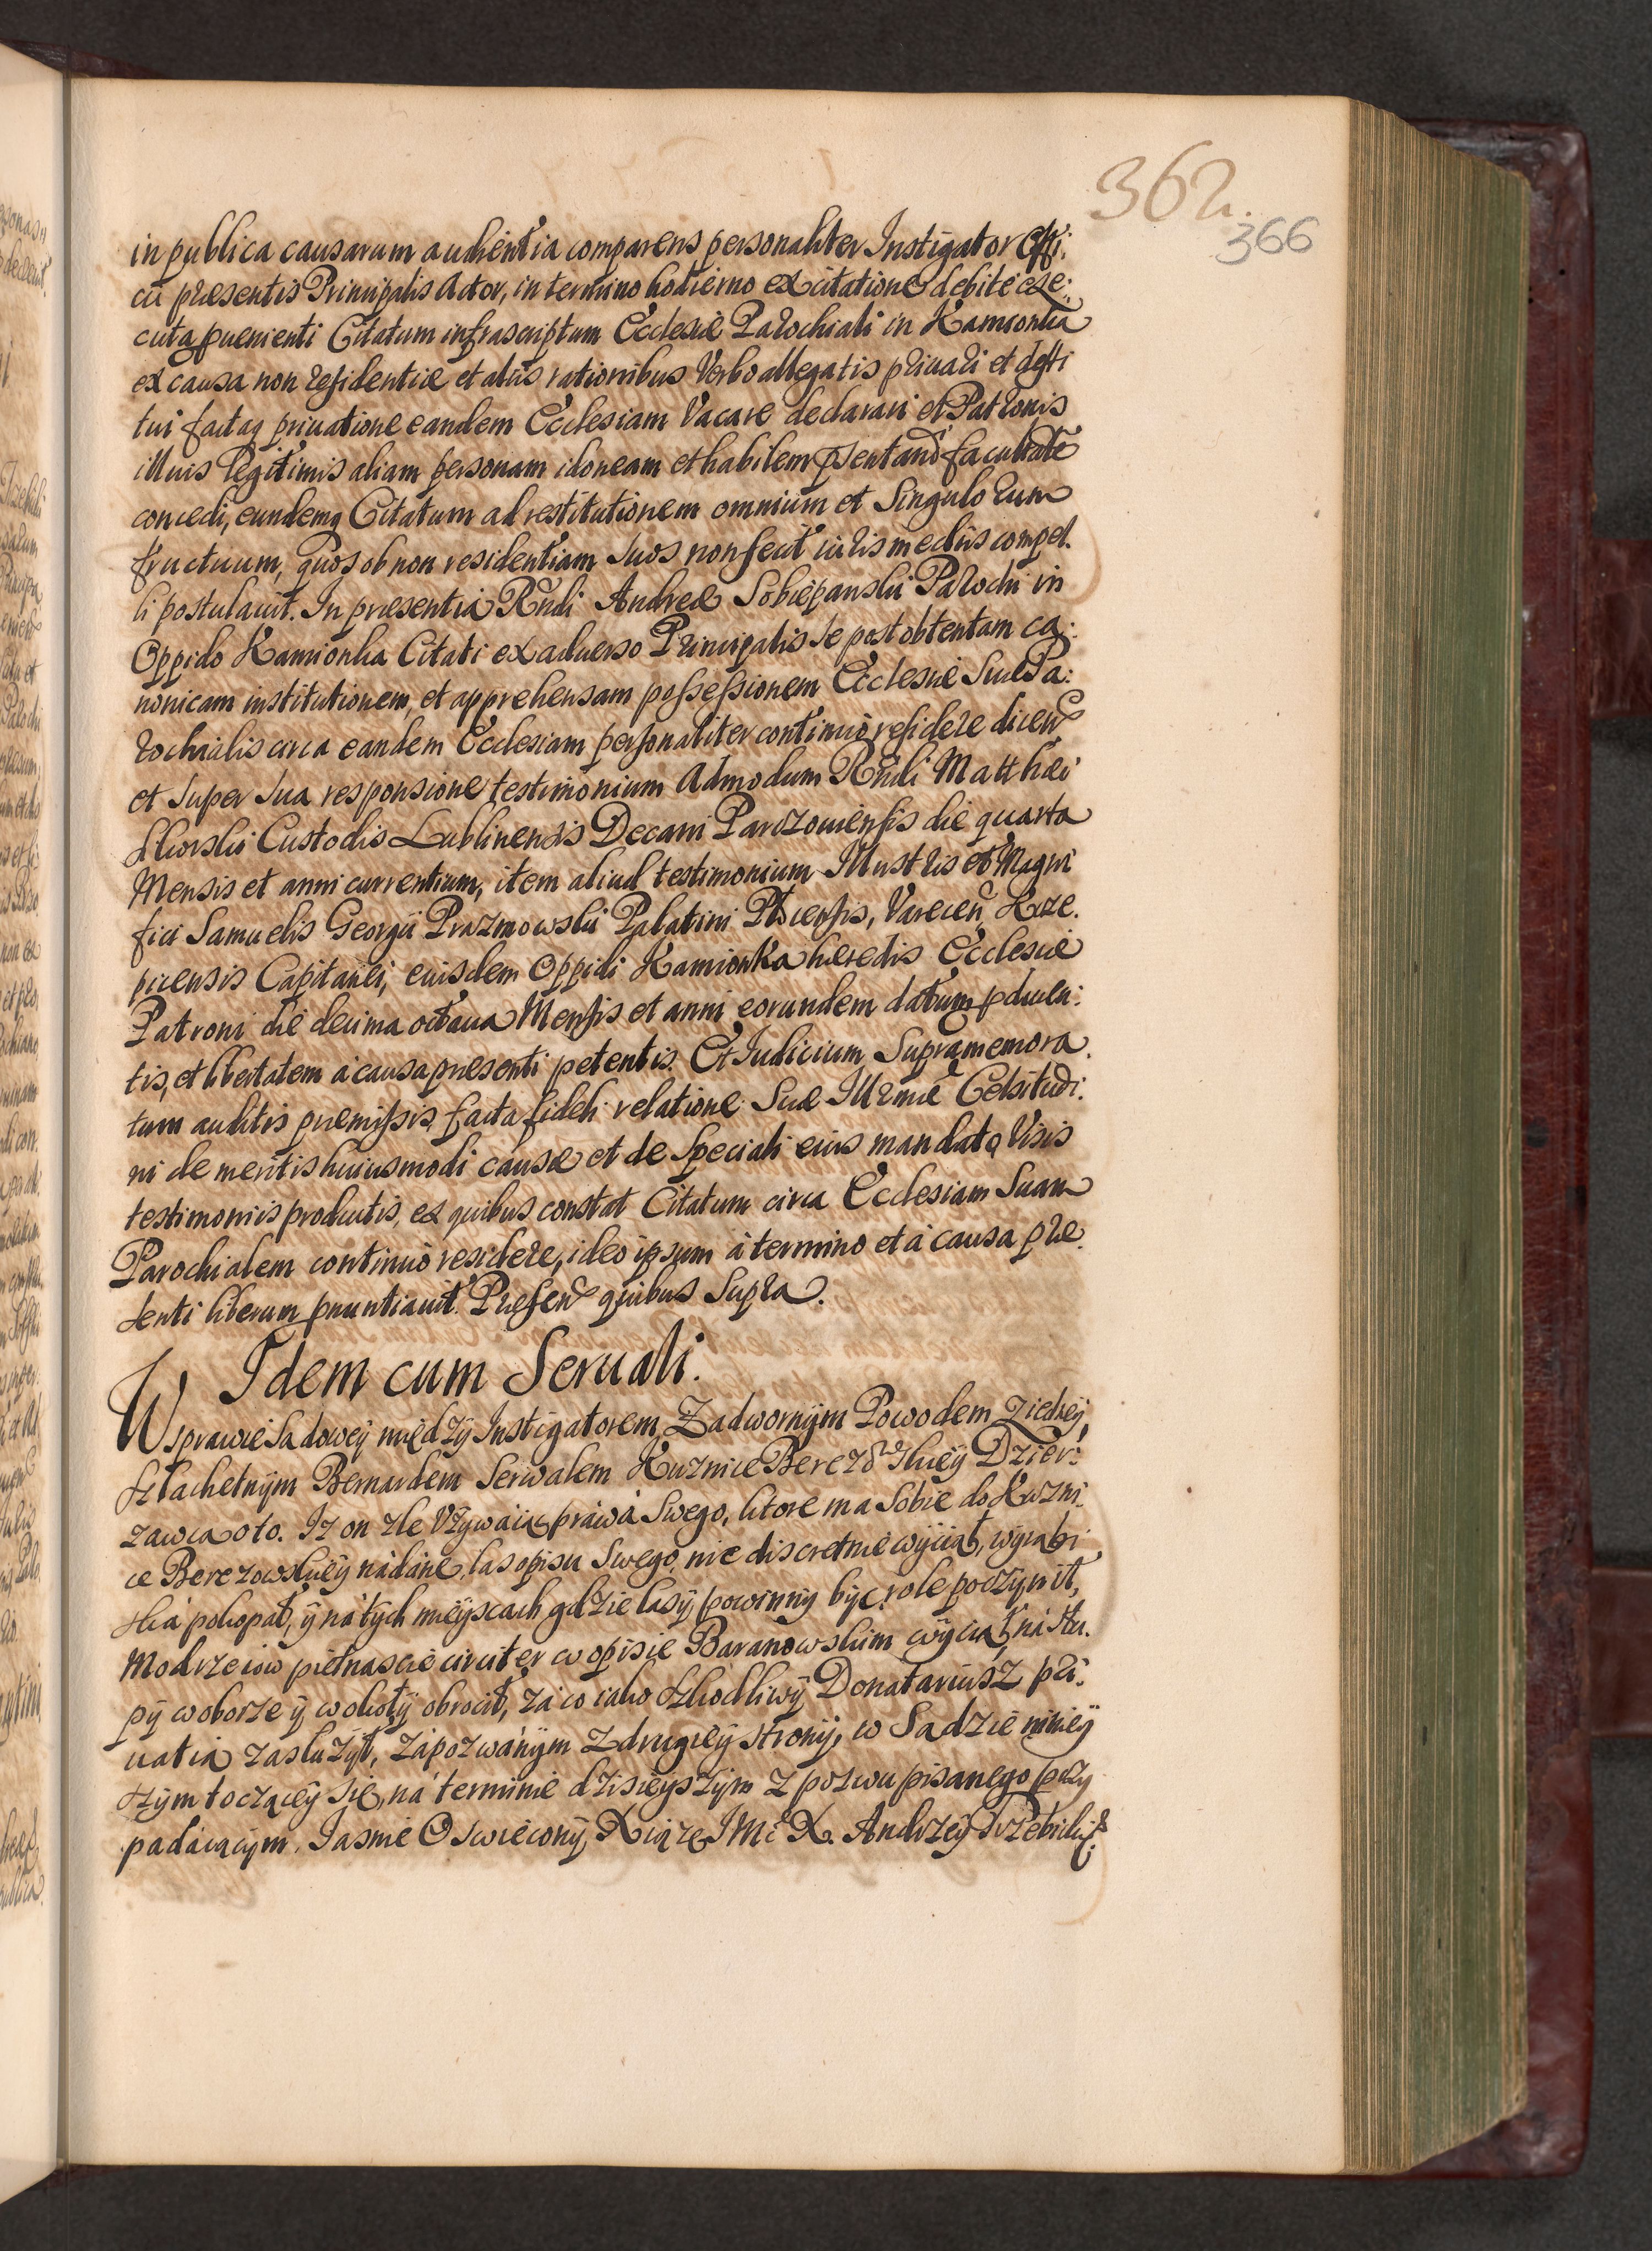 362.
366
in publica causarum audientia comparens personaliter Instigator Offi:
cii præsentis Principalis Actor, in termino hodierno ex citatione debite exe:
cuta puenienti Citatum infrascriptum Ecclesiæ Parochiali in Kamionka
ex causa non residentiæ et aliis rationibus Verbo allegatis priuari et desti
tui factaq priuatione eandem Ecclesiam Vacare declarari et Patronis
illius legitimis aliam personam idoneam et habilem psentand facultate
concedi, eundemq Citatum ad restitutionem omnium et Singulorum
fructuum, quos ob non residentiam suos non fecit iuris mediis compel.
li postulauit. In præsentia Rndi Andreæ Sobiepanski Parochi in
Oppido Kamionka Citati ex aduerso Principalis se post obtentam ca:
nonicam institutionem, et apprehensam possessionem Ecclesiæ Suæ Pa:
rochialis circa eandem Ecclesiam personaliter continuò residere dicen
et super sua responsione testimonium Admodum Rndi Matthæi
Custodis Lublinensis Decani Parczouiensis die quarta
Mensis et anni currentium, item aliud testimonium Illustris et Magni
fici Samuelis Georgii Prazmowski Palatini Plocensis, Varecen, Krze.
picensis Capitanei, eiusdem Oppidi Kamionka hæredis Ecclesiæ
Patroni die decima octaua Mensis et anni eorundem datum pducen:
tis, et libertatem à causa præsenti petentis. Et Iudicium Supramemora.
tum auditis præmissis, facta fideli relatione Suæ Illrmæ Celsitudi.
ni de meritis huiusmodi causæ et de Speciali eius mandato, Visis
testimoniis productis, ex quibus constat Citatum circa Ecclesiam Suam
Parochialem continuò residere, ideo ipsum à termino et à causa præ
senti liberum pnuntiauit. Præsen quibus Supra.
Idem cum Serwali.
W sprawie Sadowey między Instigatorem Zadwornym Powodem z iedney,
Szlachetnym Bernardem Serwalem Kuznice Berezowskiey Dzier:
zawca o to. Iz on zle Vzywaiąc prawa Swego, ktore ma Sobie do Kuzni
ce Berezowskiey nadane, las opisu Swego, nie discretnie wyciął, wyrabi
ska pokopał, y na tych mieyscach gdzie lasy powinny być role poczynił,
Modrzewiow pietnascie circiter w opisie Baranowskim wyciął, na stu.
py w oborze y w okoły obrocił, za co iako szkodliwy Donatariusz pri:
uatią zasłużył, zapozwanym z drugiey strony, w Sądzie niniey
szym toczącey się, na terminie dzisieyszym z pozwu pisanego przy
padaiącym. Iasnie Oswiecony, Xiąze IMc X. Andrzey Trzebicki